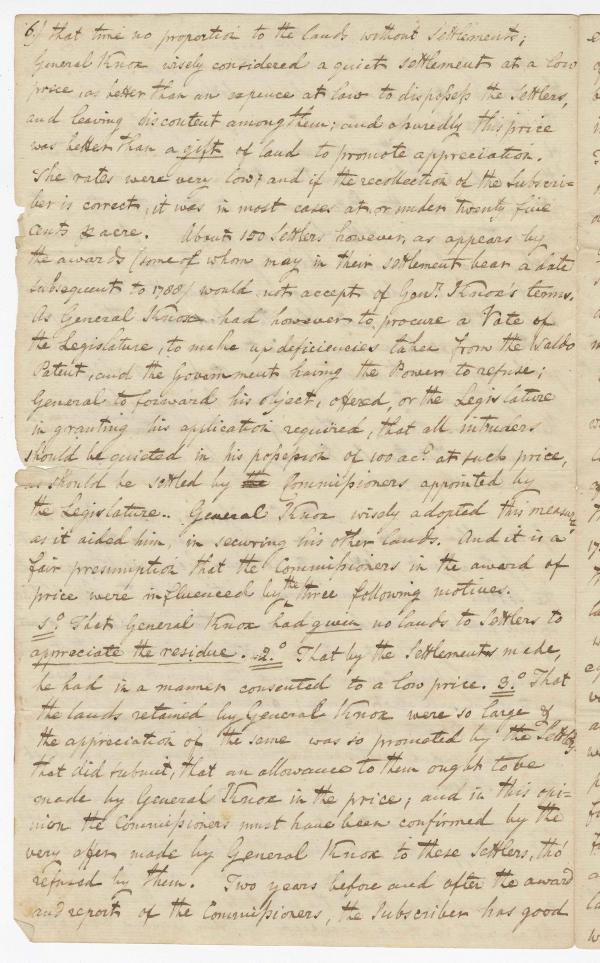 6/ that time no proportion to the lands without Settlements;
General Knox wisely considered a quiet settlement at a low
price as better than an expence at law to dispossess the Settlers,
and leaving discontent among them; and assuredly this price
was better than a gift of land to promote appreciation.
The rates were very low; and if the recollection of the Subscri-
ber is correct, it was in most cases at, or under twenty five
Cents ⅌ acre. About 150 Settlers however, as appears by
the awards (some of whom may in their settlement bear a date
subsequent to 1788/ would not accept of Genl. Knox's terms.
As General Knox had however to procure a Vote of
the Legislature, to make up deficiencies taken from the Waldo
Patent, and the Government having the Power to refuse;
General to forward his object, offered, or the Legislature
in granting his application required, that all intruders
should be quieted in his possession of 100 acs. at such price,
as should be settled by the Commissioners appointed by
the Legislature.. General Knox wisely adopted this measure
as it aided him, in securing his other lands. And it is a
fair presumption that the Commissioners in the award of
price were influenced by the three following motives.
1.o That General Knox had given no lands to Settlers to
appreciate the residue. 2.o That by the Settlements made,
he had in a manner consented to a low price. 3.o That
the lands retained by General Knox were so large &
the appreciation of the same was so promoted by the Settlers
that did submit, that an allowance to them ought to be
made by General Knox in the price; and in this opi-
nion the Commissioners must have been confirmed by the
very offer made by General Knox to these Settlers, tho'
refused by them. Two years before and after the award
and report of the Commissioners, the Subscriber has good